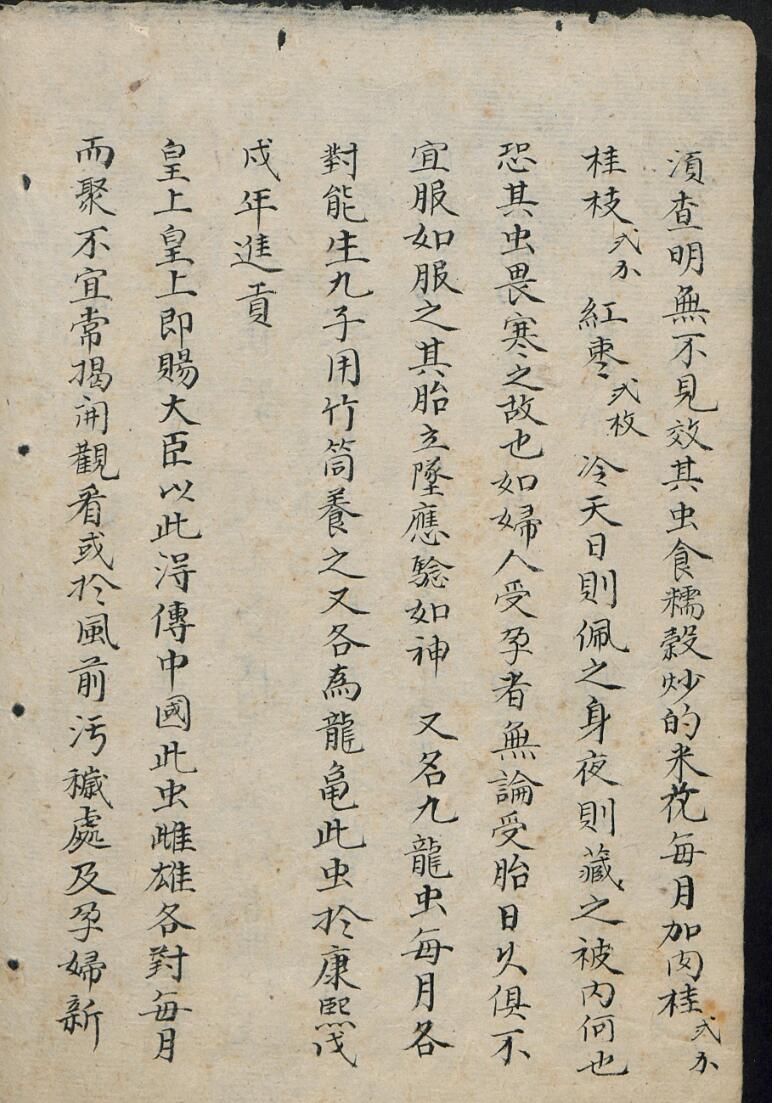 須查明無不見效其虫食糯穀炒的米花每月加肉桂弍分
桂枝弍分 紅棗弍枚 冷天日則佩之身夜則藏之被内何也
恐其虫畏寒之故也如婦人受孕者無論受胎日久俱不
宜服如服之其胎立墜應驗如神 又名九龍虫每月各
對能生九子用竹筒養之又各為龍亀此虫於康熙戊
戍年進貢
皇上皇上即賜大臣以此淂傳中國此虫雌雄各對每月
而聚不宜常揭開觀看或於風前汚穢處及孕婦新